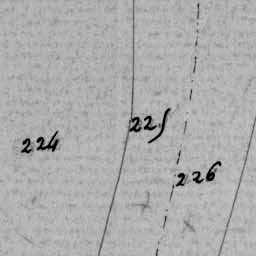 224
225
226